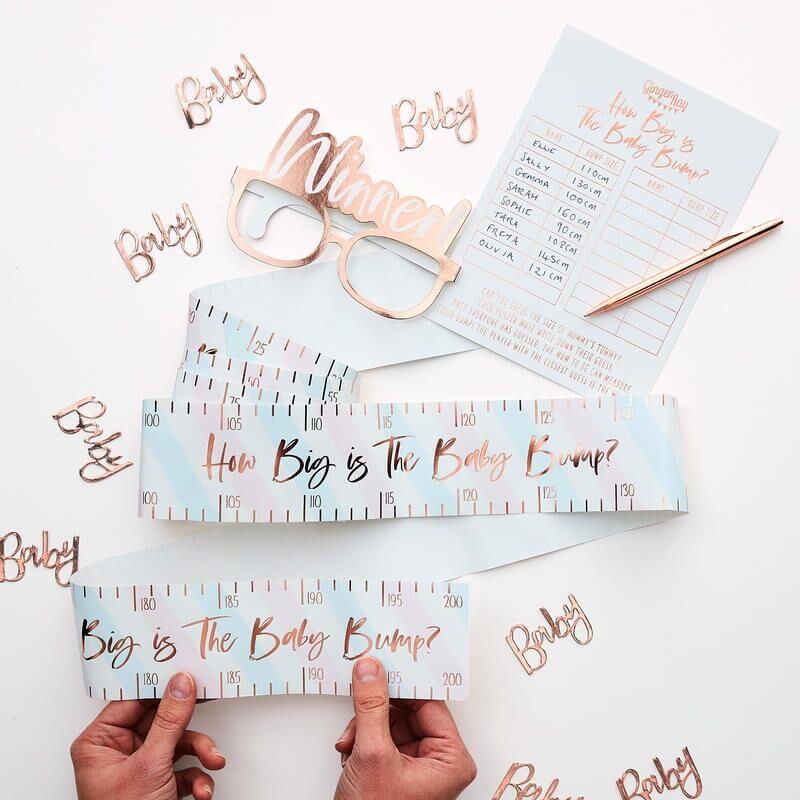 Baby
Baby
Baby
Winner
GingerRay
How Big is
The Baby Bump?
NAME BUMP SIZE
ELLIE 110cm
SALLY 130cm
GEMMA 100cm
SARAH 160cm
SOPHIE 90cm
TARA 108cm
FREYA 145cm
OLIVIA 121cm
NAME BUMP SIZE
CAN YOU GUESS THE SIZE OF MUMMY'S TUMMY?
EACH PLAYER MUST WRITE DOWN THEIR GUESS.
ONCE EVERYONE HAS GUESSED, THE MUM TO BE CAN MEASURE
THEIR BUMP! THE PLAYER WITH THE CLOSEST GUESS IS THE
25
50 55
75
100 105 110 115 120 125
How Big is The Baby Bump?
100 105 110 115 120 125 130
Baby
Baby
180 185 190 195 200
Big is The Baby Bump?
180 185 195 200
Baby
Baby
Baby